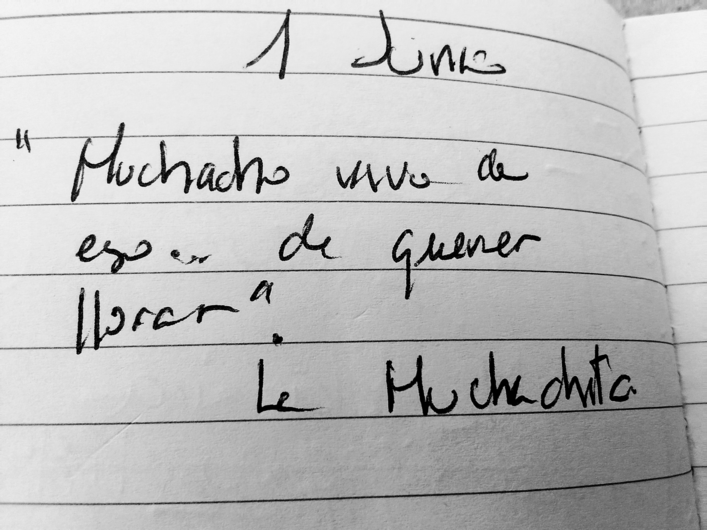 1 Junio
"Muchacho vivo de
eso... de querer
llorar".
La Muchachita